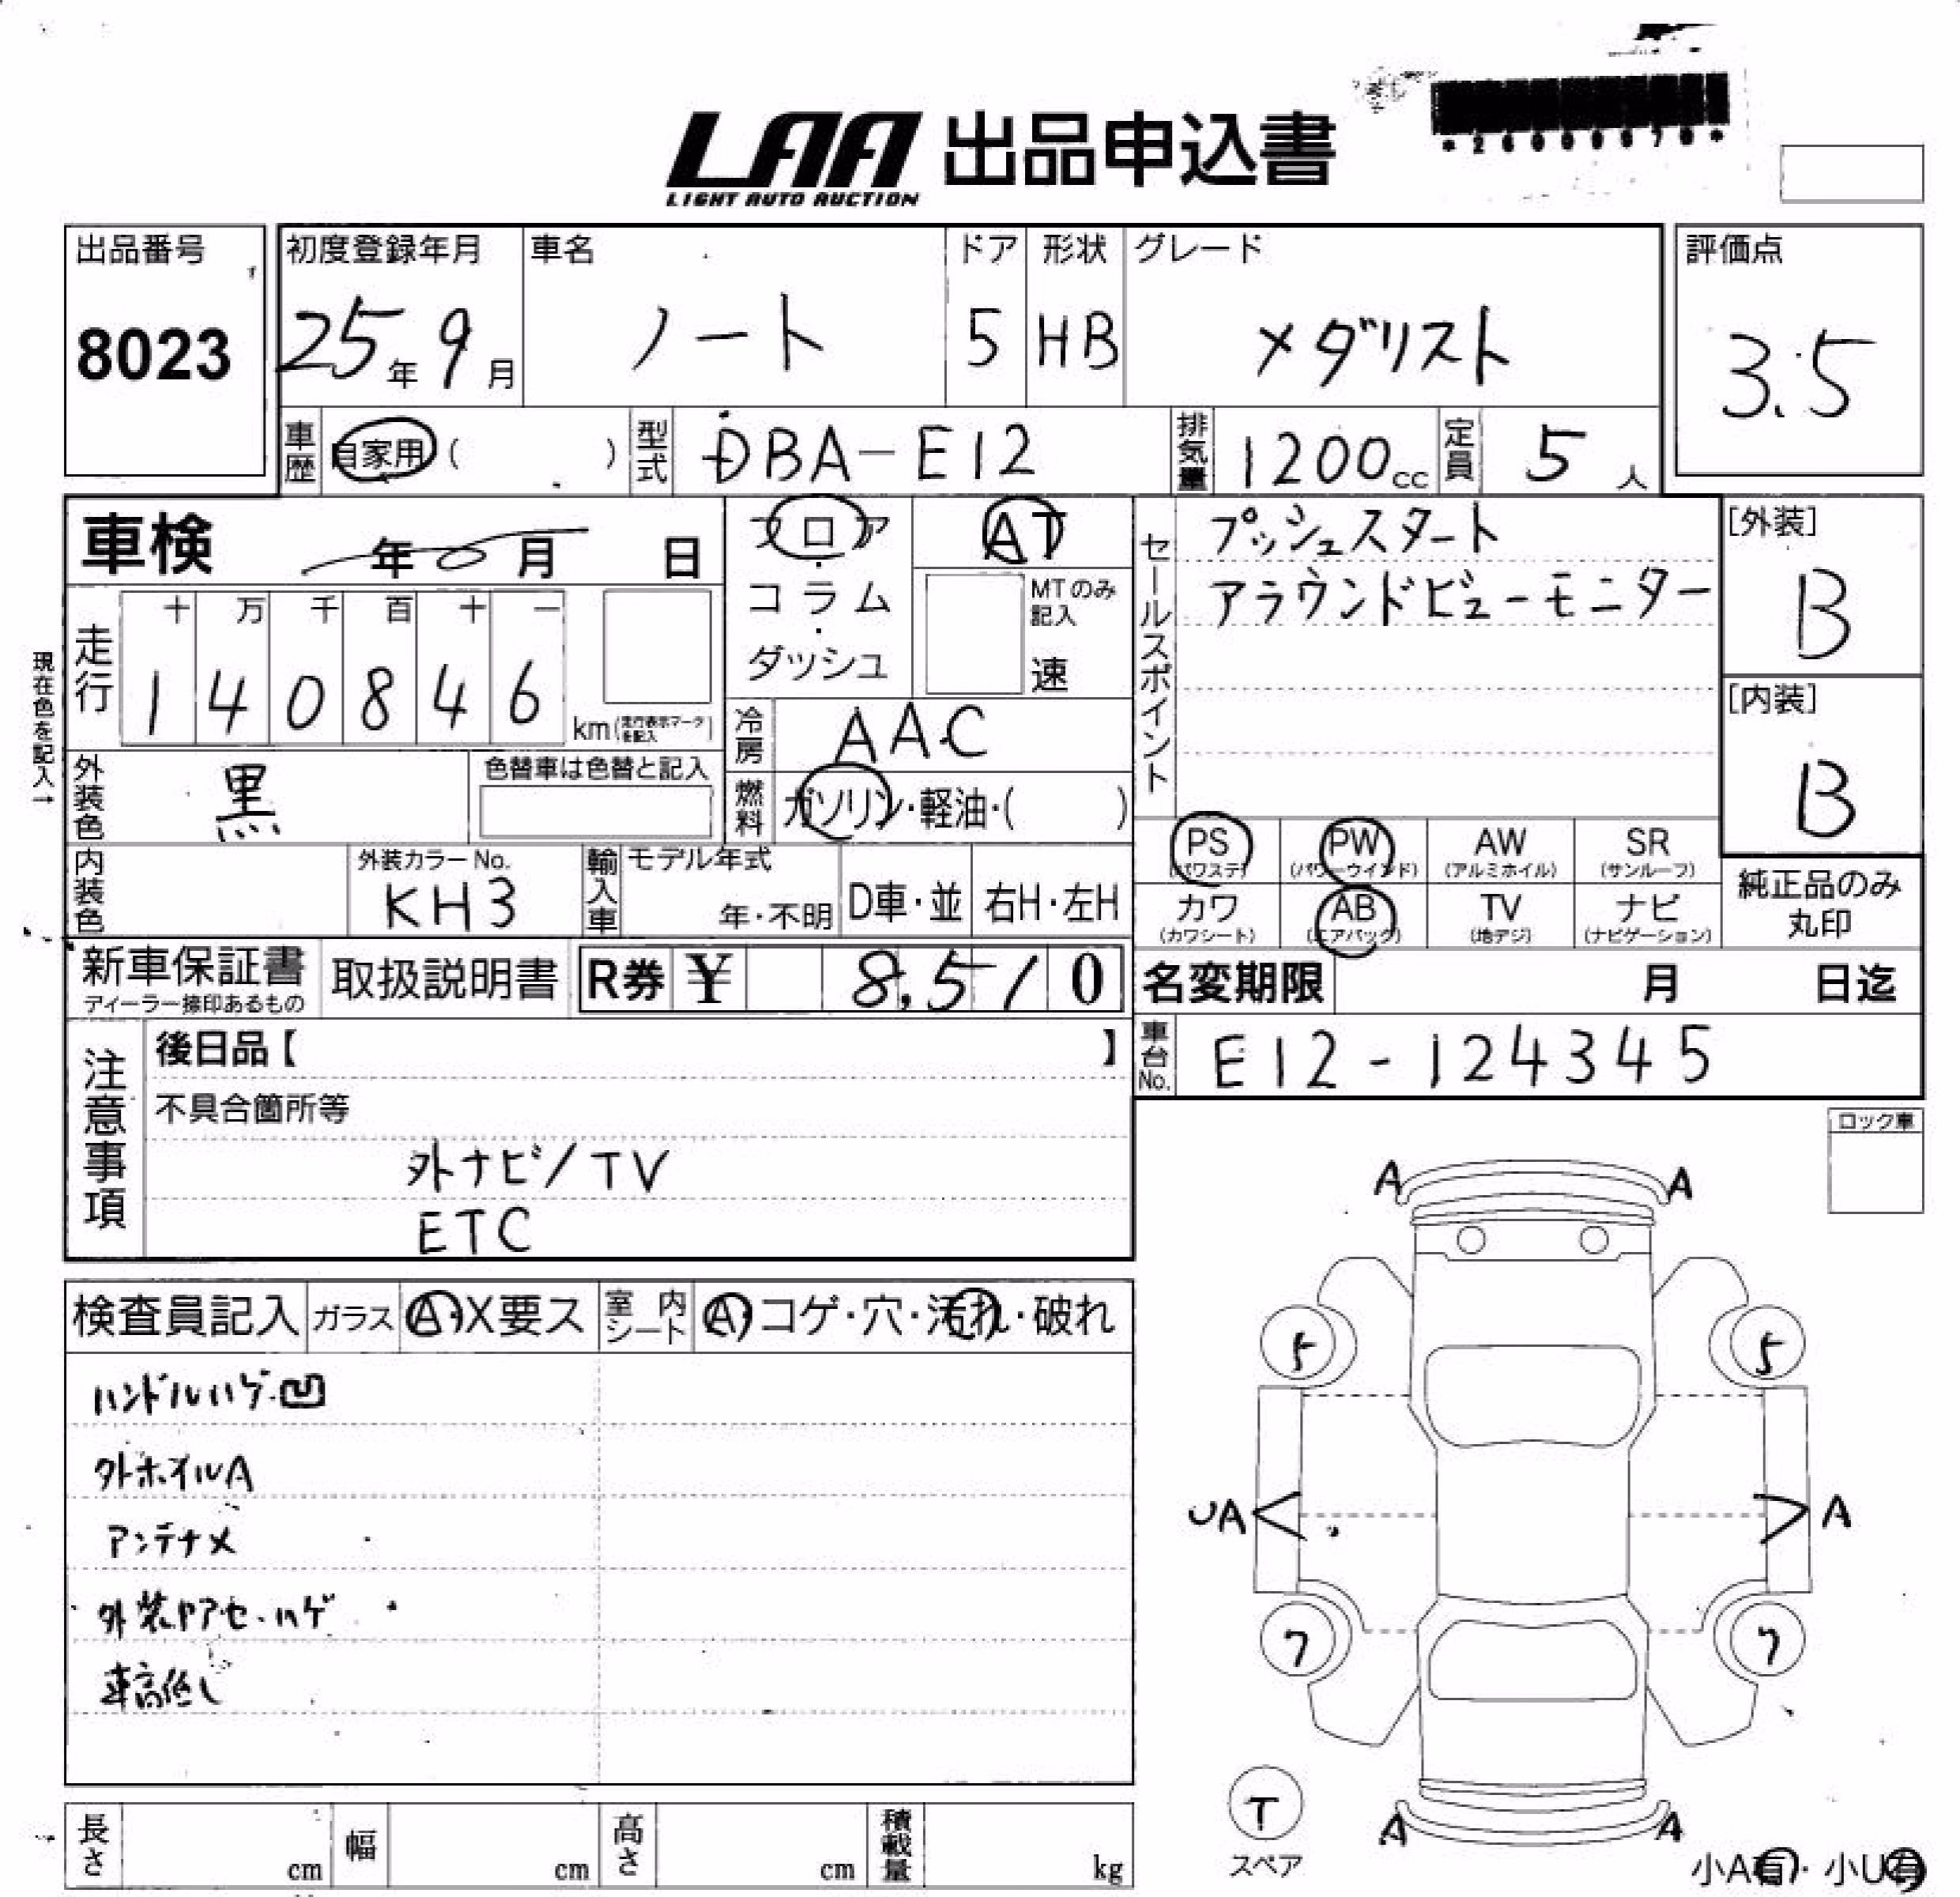 LAA 出品申込書
LIGHT AUTO AUCTION
出品番号
8023
初度登録年月
25年9月
車名
ノート
ドア
5
形状
HB
グレード
メダリスト
評価点
3.5
車歴 自家用( )
型式 DBA-E12
排気量 1200cc
定員 5人
車検 年 月 日
フロア
コラム
・
ダッシュ
AT
MTのみ
記入
速
セールスポイント
プッシュスタート
アラウンドビューモニター
[外装]
B
[内装]
B
現在色を記入→
走行
十 万 千 百 十 一
1 4 0 8 4 6
km(走行表示マークを記入)
冷房 AAC
燃料 ガソリン・軽油・( )
外装色 黒
色替車は色替と記入
内装色
外装カラーNo.
KH3
輸入車
モデル年式
年・不明
D車・並
右H・左H
PS
(パワステ)
PW
(パワーウインド)
AW
(アルミホイル)
SR
(サンルーフ)
カワ
(カワシート)
AB
(エアバック)
TV
(地デジ)
ナビ
(ナビゲーション)
純正品のみ
丸印
新車保証書
ディーラー捺印あるもの
取扱説明書
R券 ¥ 8,510
名変期限 月 日迄
車台No. E12-124345
注意事項
後日品【 】
不具合箇所等
外ナビ/TV
ETC
ロック車
検査員記入
ガラス A・X要ス
室内シート A・コゲ・穴・汚れ・破れ
ハンドルハゲ・凹
外ホイルA
アンテナメ
外装ヤアセ・ハゲ
車高低し
A A
5 5
UA A
7 7
T
スペア
A A
小A有・小U有
長さ cm
幅 cm
高さ cm
積載量 kg